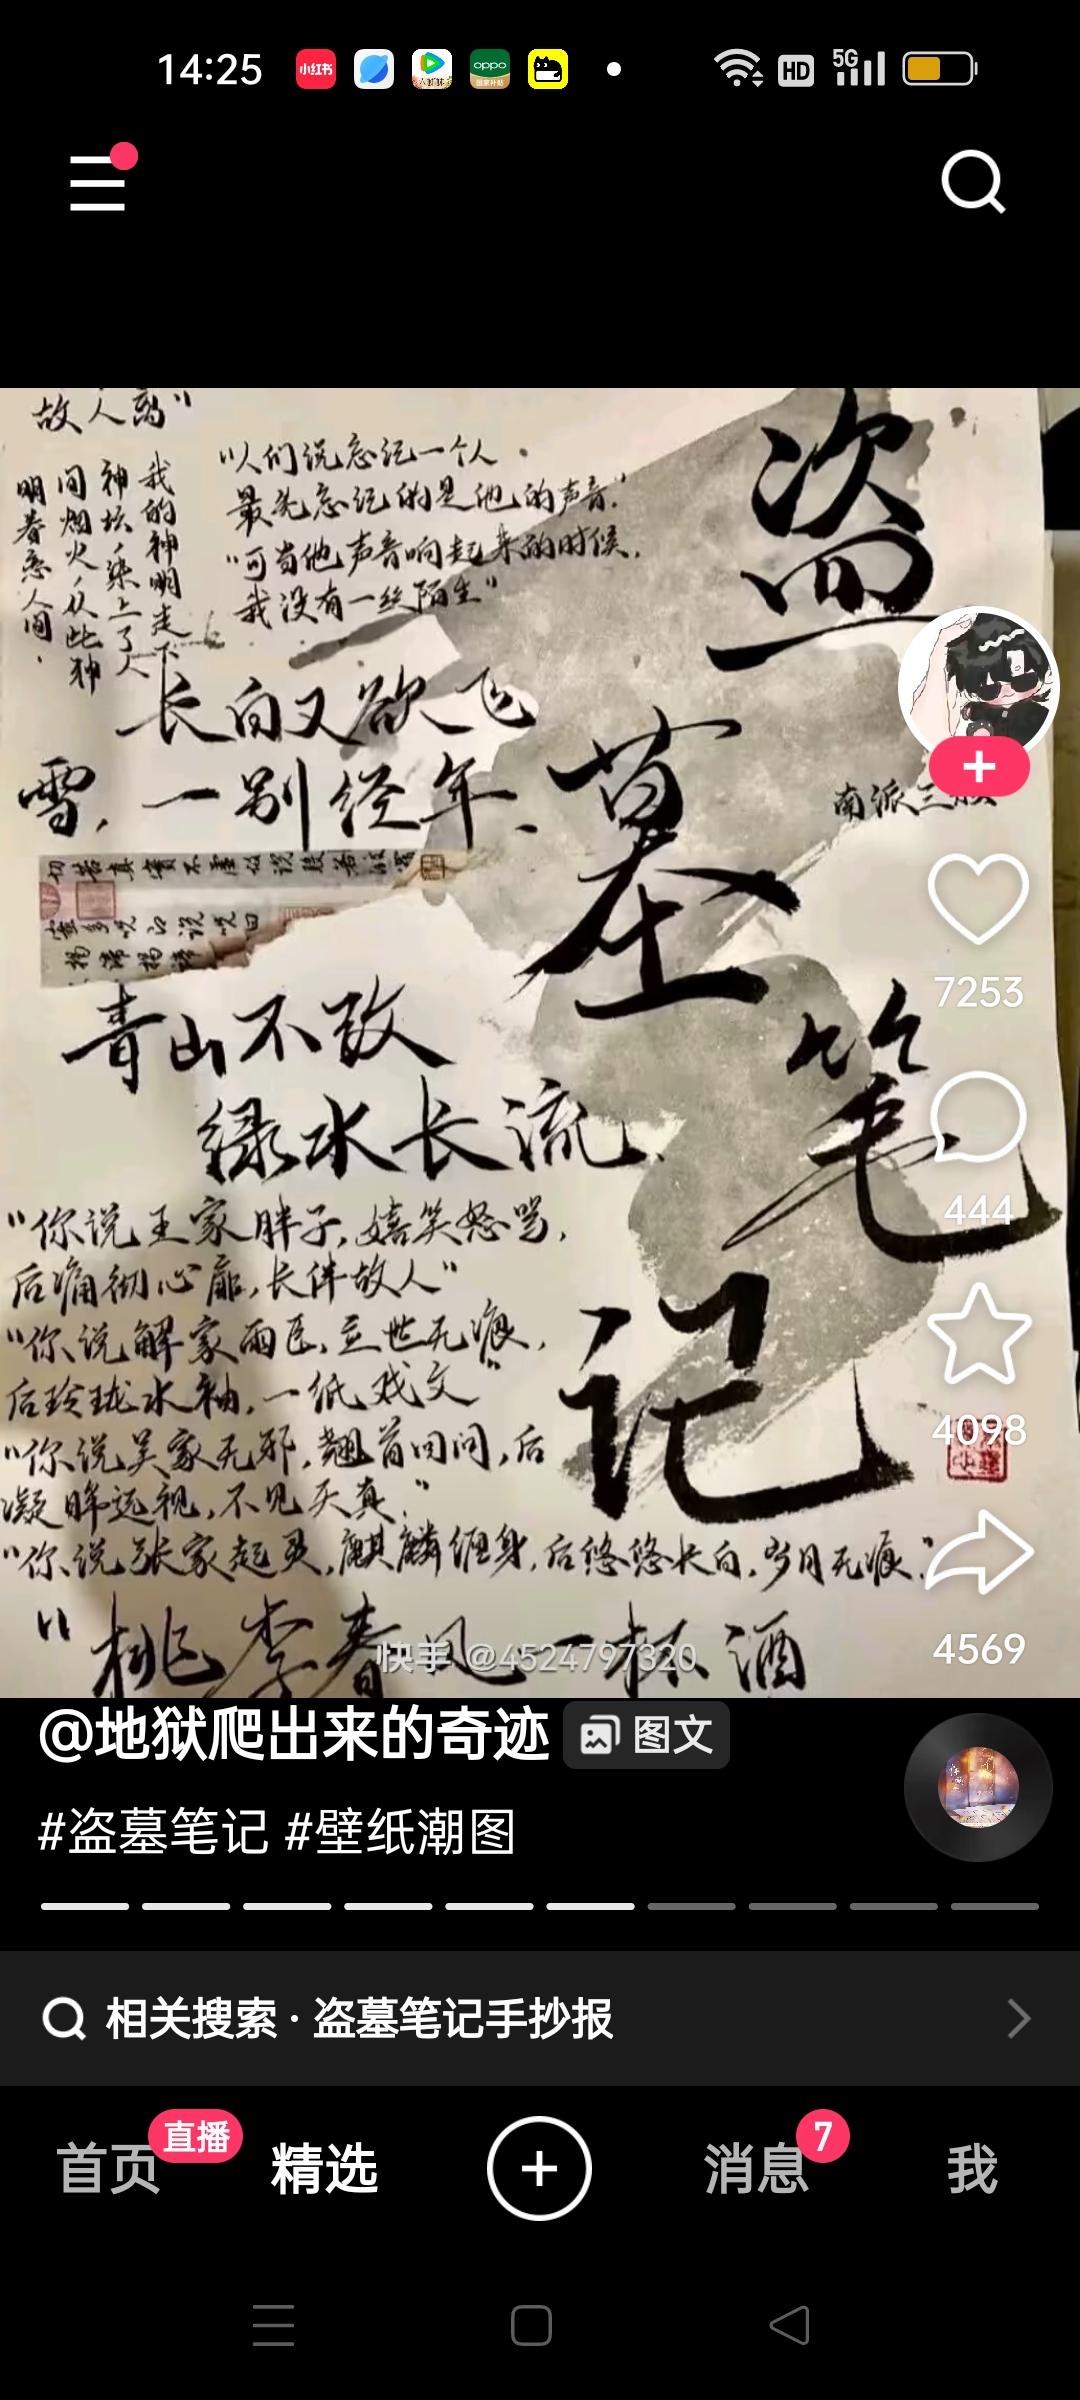 14:25
小红书
oppo
HD
5G
故人离"
我的神明走下
神坛,染上了人
间烟火,从此神
明眷恋人间.
"人们说忘记一个人.
最先忘记的是他的声音."
"可当他声音响起来的时候,
我没有一丝陌生"
盗
墓
笔
记
南派三
长白又欲飞
雪,一别经年、
青山不改
绿水长流、
"你说王家胖子,嬉笑怒骂,
后痛彻心扉,长伴故人"
"你说解家雨臣,立世无痕,
后玲珑水袖,一纸戏文"
"你说吴家无邪,翘首回问,后
凝眸远视,不见天真."
"你说张家起灵,麒麟缠身,后悠悠长白,岁月无痕."
"桃李春风一杯酒
快手 @4524797320
7253
444
4098
4569
@地狱爬出来的奇迹 图文
#盗墓笔记 #壁纸潮图
相关搜索 · 盗墓笔记手抄报
首页 直播 精选 消息 7 我